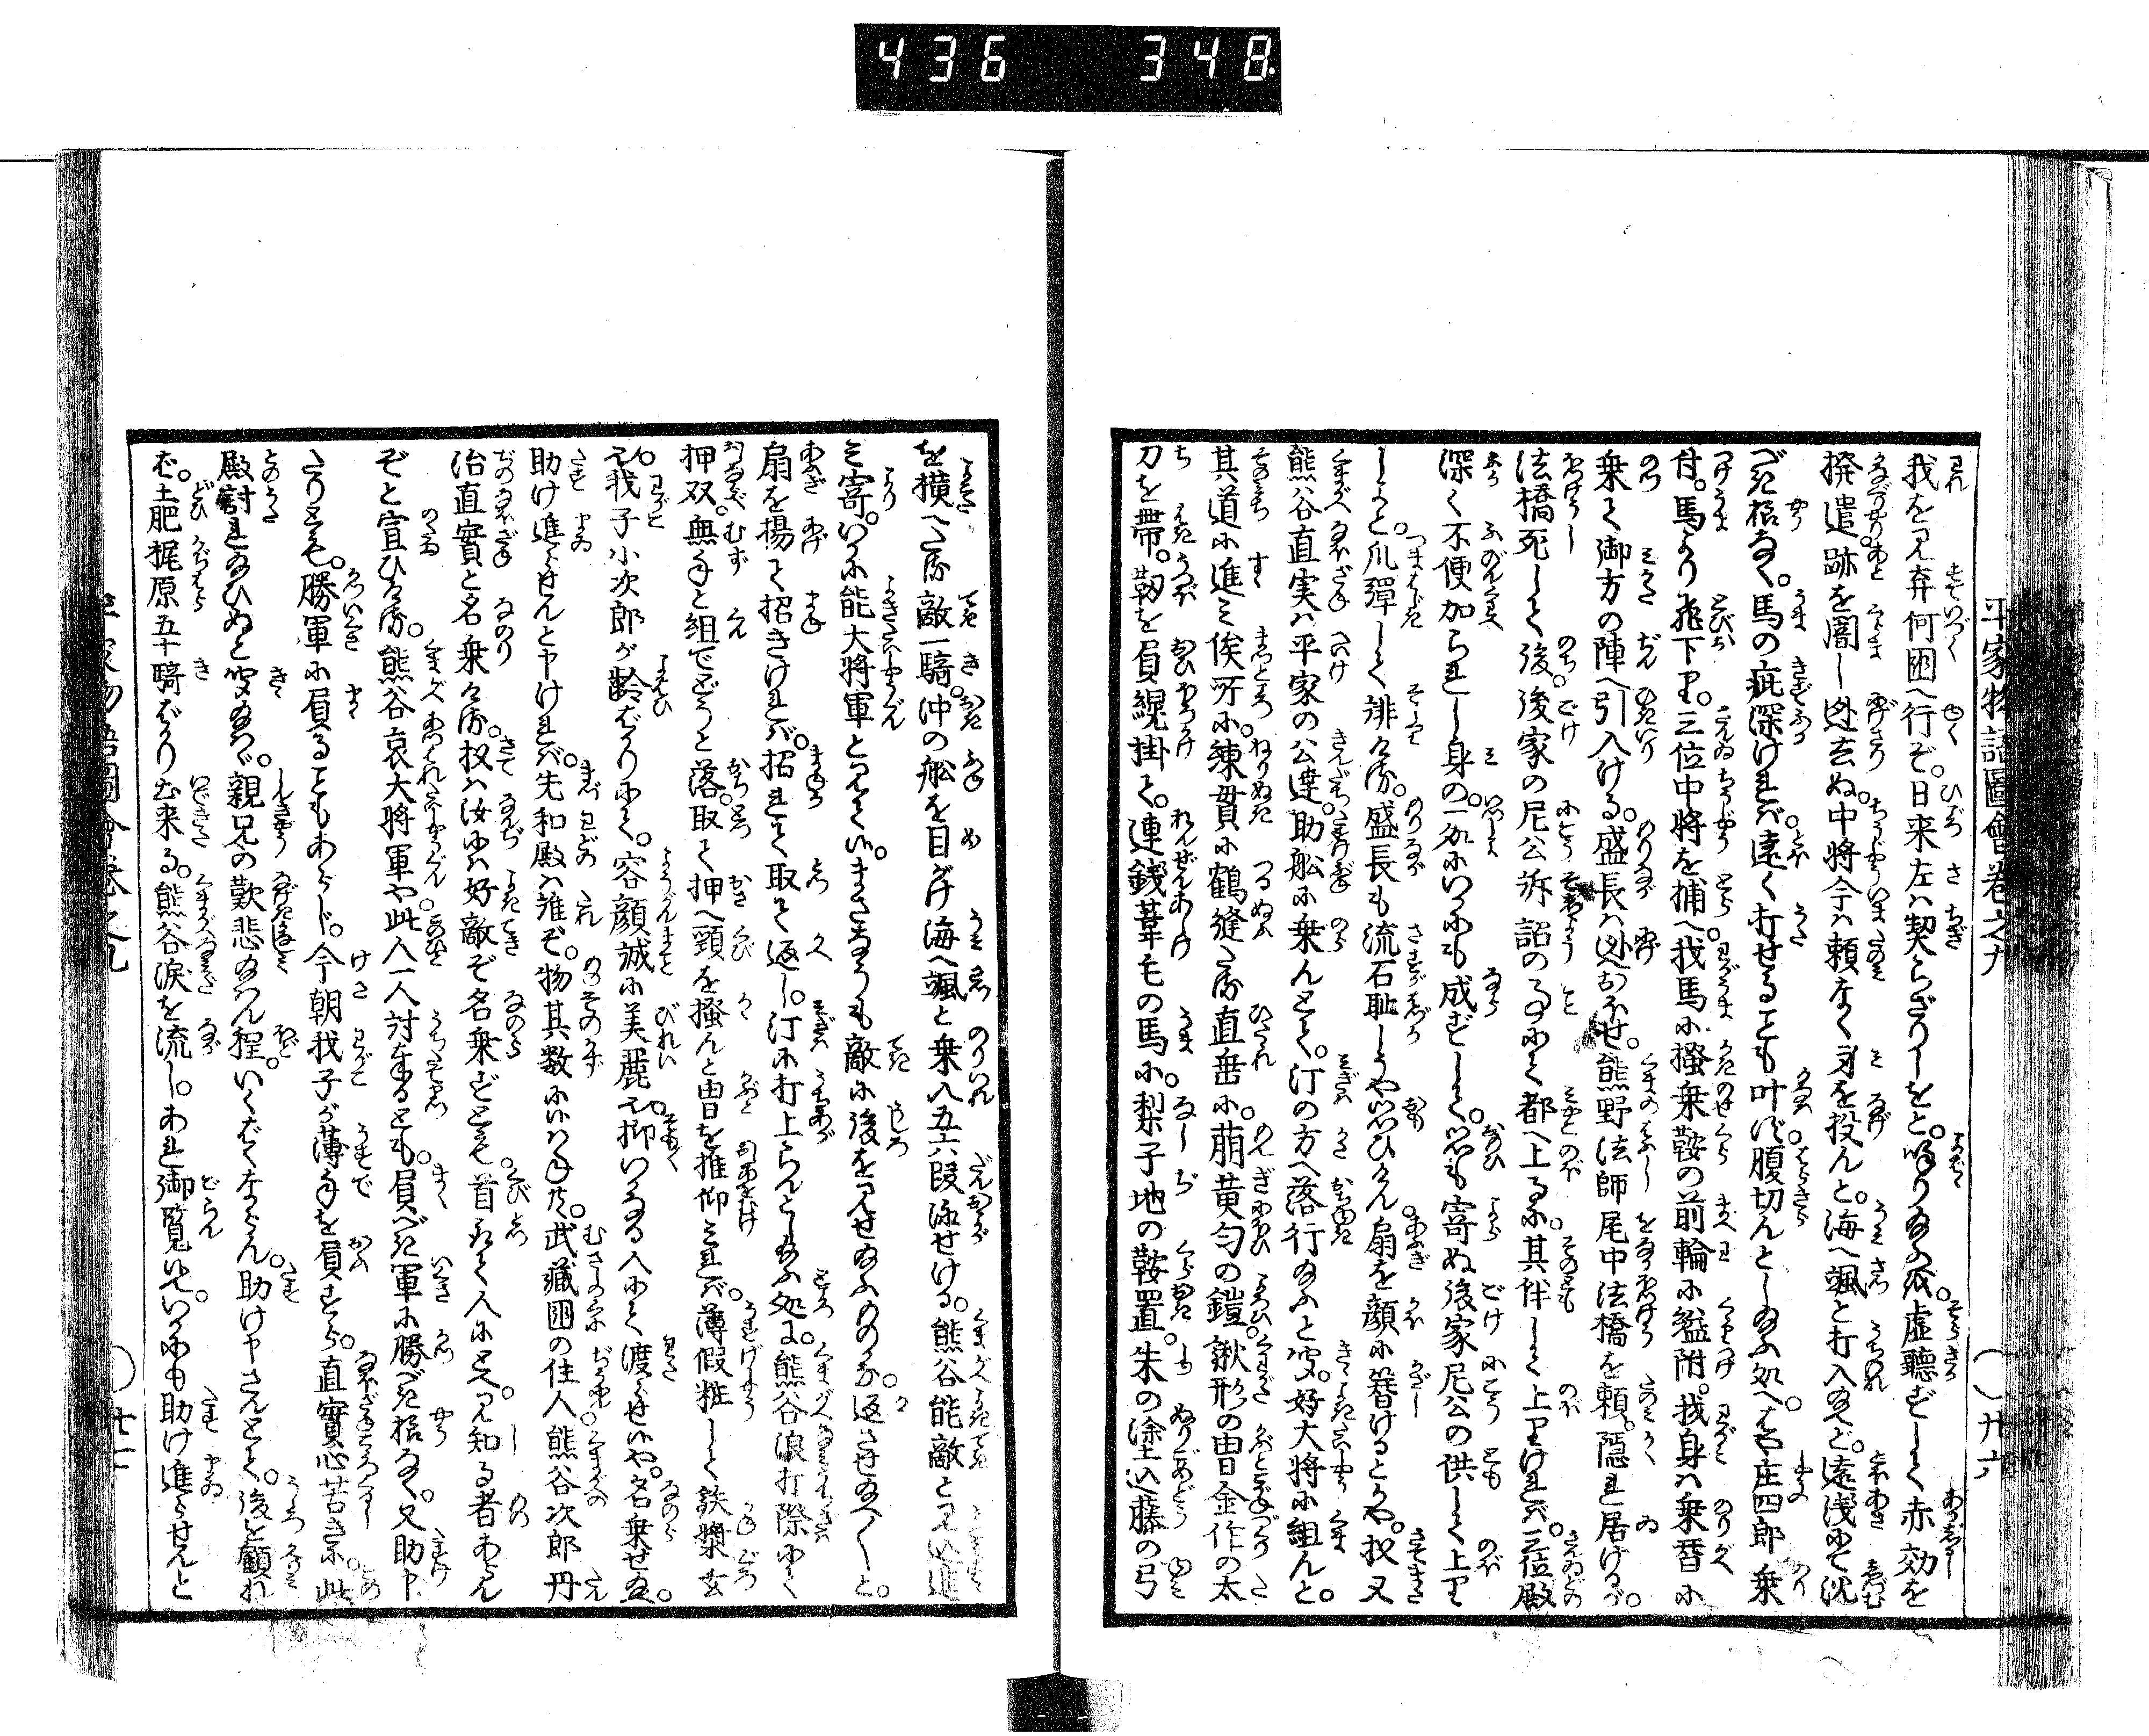 436 348
平家物語圖會巻之九 〇廿六
我を見弃何囲へ行ぞ。日来左ハ契らざりしをと。喚り給ふ砥。虚聽ずして赤効を
撩遣跡を闇し迯去ぬ。中将今ハ頼なく身を投んと。海へ颯と打入給へど。遠浅にて沈
べき様なく。馬の疵深ければ遠く打せることも叶はず。腹切んとし給ふ処へ。はや庄四郎乗
付。馬より飛下り。三位中将を捕へ我馬に掻乗鞍の前輪に縊附。我身ハ乗替に
乗て御方の陣へ引入ける。盛長ハ迯おふせ。熊野法師尾中法橋を頼。隠れ居けるが。
法橋死して後。後家の尼公訴詔の事にて都へ上るに。其伴して上りければ。三位殿
深く不便加られし身の。一処にいかにも成ずして。思も寄ぬ後家尼公の供して上り
しよと。爪彈して誹ける。盛長も流石耻しうや思ひけん。扇を顔に簪けるとかや。扨又
熊谷直実ハ平家の公達。助舩に乗んとて。汀の方へ落行給ふと覚。好大将に組んと。
其道に進ミ俟所に。練貫に鶴縫たる直垂に。萠黄匂の鎧。鍬形の冑金作の太
刀を帶。靭を屓縨掛て。連銭葦毛の馬に。梨子地の鞍置。朱の塗込藤の弓
を横へたる敵一騎。沖の舩を目がけ海へ颯と乗入五六段泳せける。熊谷能敵と見て進
ミ寄。いかに能大将軍と見て候。まさなうも敵に後を見せ給ふものかな。返させ給へ〱と。
扇を揚て招きければ。招れて取て返し。汀に打上らんとし給ふ処を。熊谷浪打際にて
押双。無手と組でどうと落。取て押へ頸を掻んと冑を推仰ミれば。薄假粧して鉄漿玄
也。我子小次郎が齢ばかりにて。容顔誠に美麗也。抑いかなる人にて渡らせ候や。名乗せ給。
助け進らせんと申ければ。先和殿ハ誰ぞ。物其数に候ハね共。武藏囲の住人熊谷次郎丹
治直實と名乗ける。扨ハ汝にハ好敵ぞ名乗ずとも首取て人に見。見知る者あらん
ぞと宣ひける。熊谷哀大将軍や此人一人討奉るとも。屓べき軍に勝べき様なく。又助申
たりとも。勝軍に屓ることもあらじ。今朝我子が薄手を屓すら。直實心苦きに。此
殿討れ給ひぬと聞給はゞ。親兄の歎悲給はん程。いくばくならん。助け申さんとて。後を顧れ
ば。土肥梶原五十騎ばかり出来る。熊谷涙を流し。あれ御覧候へ。いかにも助け進らせんと
平家物語圖會巻之九 〇廿七